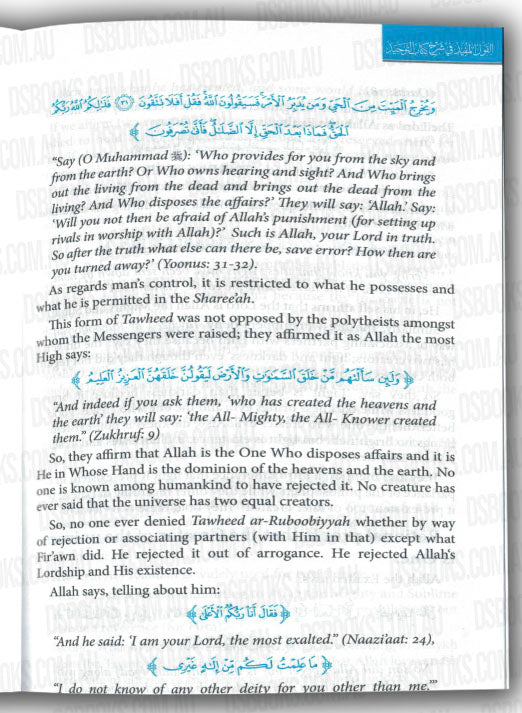 القول المفيد في شرح كتاب التوحيد
وَيُخْرِجُ الْمَيِّتَ مِنَ الْحَيِّ وَمَن يُدَبِّرُ الْأَمْرَ فَسَيَقُولُونَ اللَّهُ فَقُلْ أَفَلَا تَتَّقُونَ ٣١ فَذَٰلِكُمُ اللَّهُ رَبُّكُمُ
الْحَقُّ فَمَاذَا بَعْدَ الْحَقِّ إِلَّا الضَّلَالُ فَأَنَّىٰ تُصْرَفُونَ ﴾
“Say (O Muhammad ﷺ): ‘Who provides for you from the sky and
from the earth? Or Who owns hearing and sight? And Who brings
out the living from the dead and brings out the dead from the
living? And Who disposes the affairs?’ They will say: ‘Allah.’ Say:
‘Will you not then be afraid of Allah’s punishment (for setting up
rivals in worship with Allah)?’ Such is Allah, your Lord in truth.
So after the truth what else can there be, save error? How then are
you turned away?’ (Yoonus: 31-32).
As regards man’s control, it is restricted to what he possesses and
what he is permitted in the Sharee’ah.
This form of Tawheed was not opposed by the polytheists amongst
whom the Messengers were raised; they affirmed it as Allah the most
High says:
﴿ وَلَئِن سَأَلْتَهُم مَّنْ خَلَقَ السَّمَاوَاتِ وَالْأَرْضَ لَيَقُولُنَّ خَلَقَهُنَّ الْعَزِيزُ الْعَلِيمُ ﴾
“And indeed if you ask them, ‘who has created the heavens and
the earth’ they will say: ‘the All- Mighty, the All- Knower created
them.” (Zukhruf: 9)
So, they affirm that Allah is the One Who disposes affairs and it is
He in Whose Hand is the dominion of the heavens and the earth. No
one is known among humankind to have rejected it. No creature has
ever said that the universe has two equal creators.
So, no one ever denied Tawheed ar-Ruboobiyyah whether by way
of rejection or associating partners (with Him in that) except what
Fir’awn did. He rejected it out of arrogance. He rejected Allah’s
Lordship and His existence.
Allah says, telling about him:
﴿ فَقَالَ أَنَا رَبُّكُمُ الْأَعْلَىٰ ﴾
“And he said: ‘I am your Lord, the most exalted.” (Naazi’aat: 24),
﴿ مَا عَلِمْتُ لَكُم مِّنْ إِلَٰهٍ غَيْرِي ﴾
“I do not know of any other deity for you other than me.’”
DSBOOKS.COM.AU